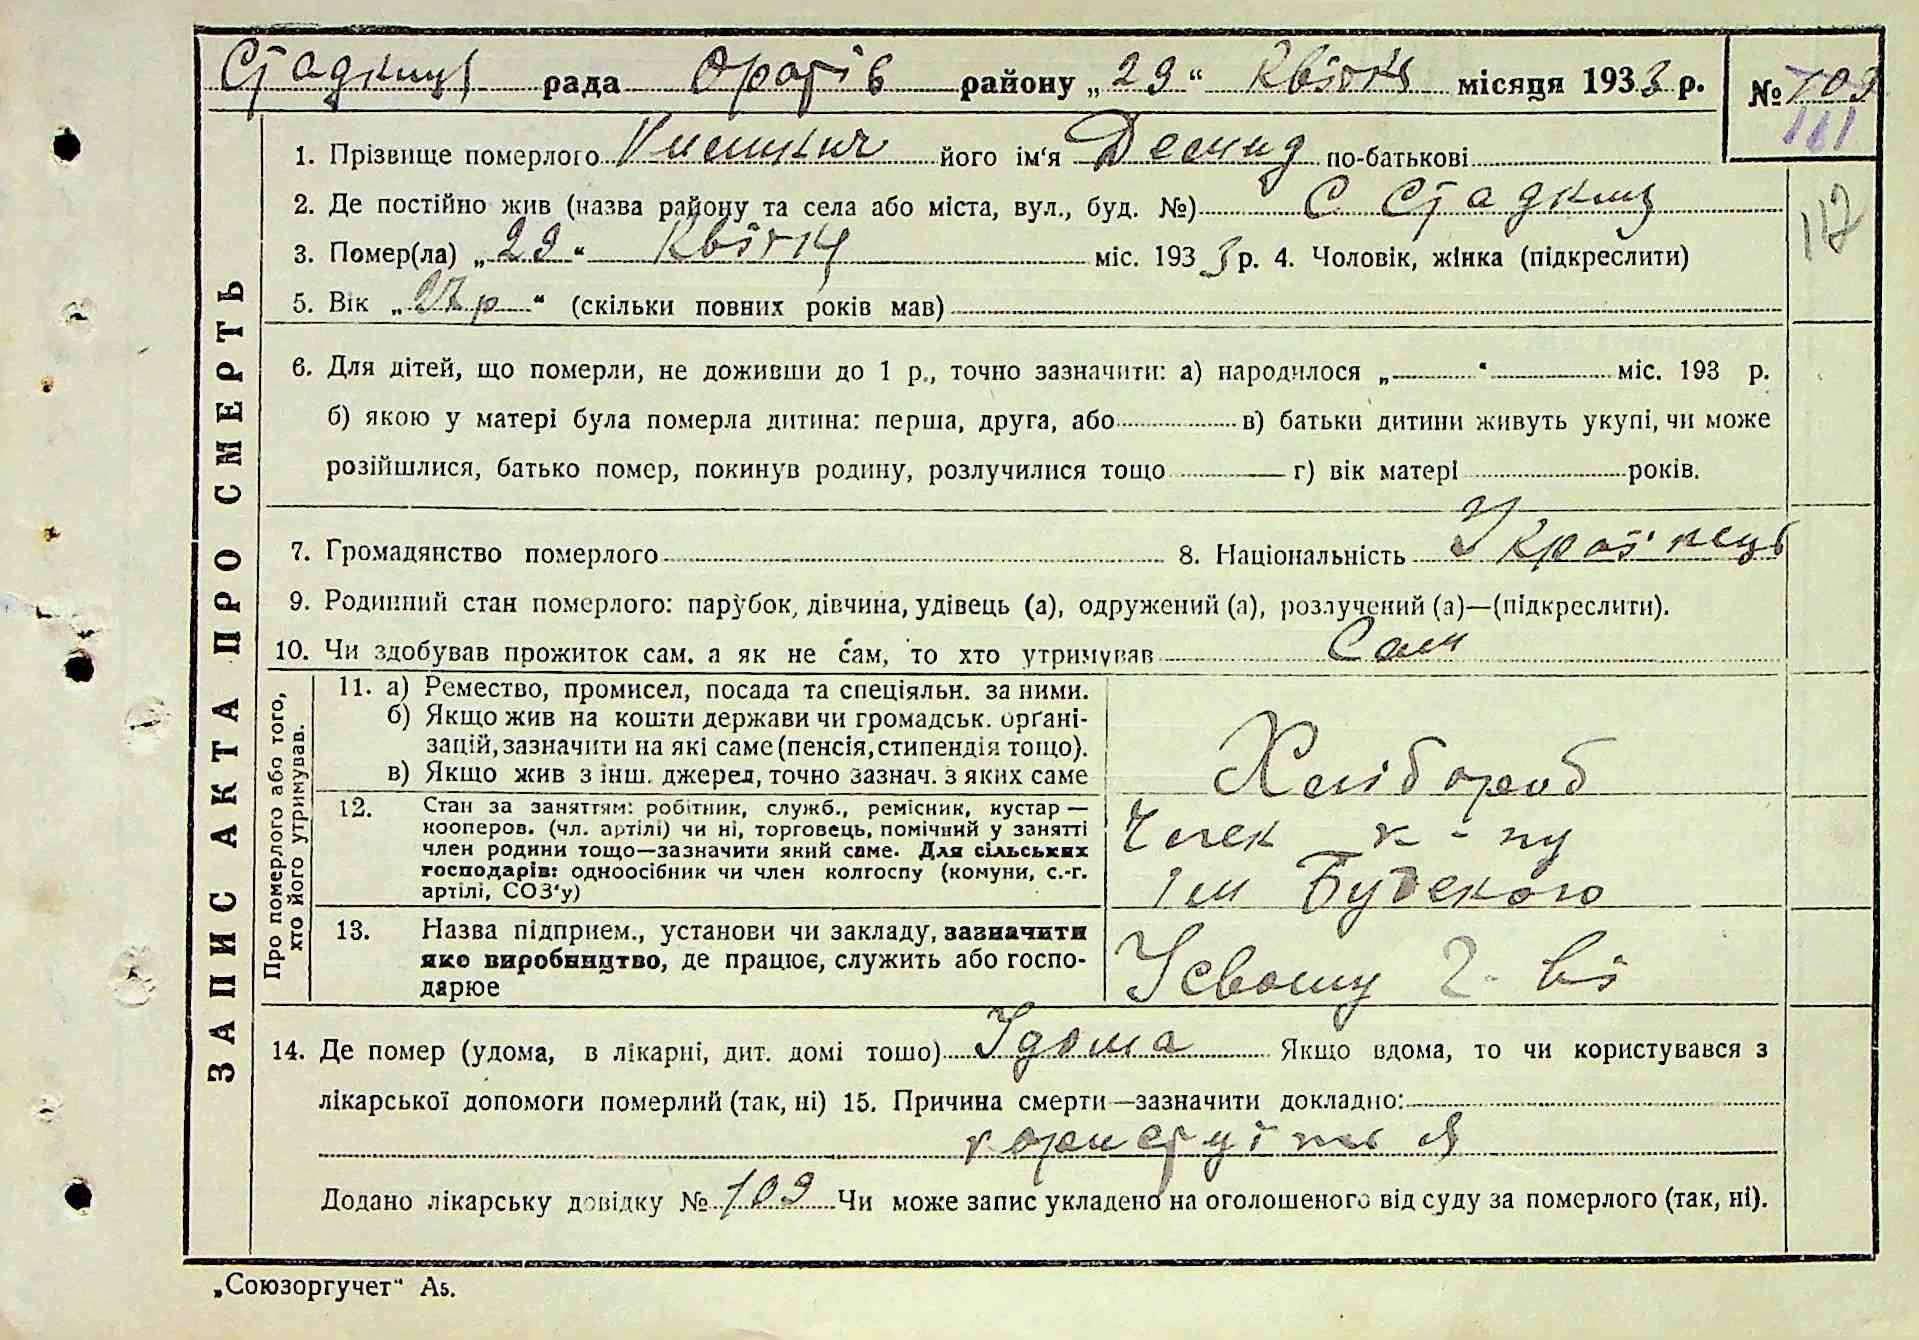 Стадниця рада Оратів району „29“ Квітня місяця 1933 р. № 109
161
1. Прізвище померлого його ім‘я Демид по-батькові
117
2. Де постійно жив (назва району та села або міста, вул., буд. №) С Стадниця
3. Помер(ла) „29“ Квітня міс. 1933 р. 4. Чоловік, жінка (підкреслити)
5. Вік „27 р“ (скільки повних років мав)
6. Для дітей, що померли, не доживши до 1 р., точно зазначити: а) народилося „ “ міс. 193 р.
б) якою у матері була померла дитина: перша, друга, або в) батьки дитини живуть укупі, чи може
розійшлися, батько помер, покинув родину, розлучилися тощо г) вік матері років.
7. Громадянство померлого 8. Національність Українець
9. Родинний стан померлого: парубок, дівчина, удівець (а), одружений (а), розлучений (а)—(підкреслити).
10. Чи здобував прожиток сам, а як не сам, то хто утримував Сам
ЗАПИС АКТА ПРО СМЕРТЬ
Про померлого або того,
хто його утримував.
11. а) Ремество, промисел, посада та спеціяльн. за ними.
б) Якщо жив на кошти держави чи громадськ. орґані-
зацій, зазначити на які саме (пенсія, стипендія тощо).
в) Якщо жив з інш. джерел, точно зазнач. з яких саме
Хлібороб
12. Стан за заняттям: робітник, служб., ремісник, кустар —
кооперов. (чл. артілі) чи ні, торговець, помічний у занятті
член родини тощо—зазначити який саме. Для сільських
господарів: одноосібник чи член колгоспу (комуни, с.-г.
артілі, СОЗ‘у)
Член к-пу
ім
13. Назва підприєм., установи чи закладу, зазначити
яке виробництво, де працює, служить або госпо-
дарює
У своему г-ві
14. Де помер (удома, в лікарні, дит. домі тощо) Удома Якщо вдома, то чи користувався з
лікарської допомоги померлий (так, ні) 15. Причина смерти—зазначити докладно:
Додано лікарську довідку № 109 Чи може запис укладено на оголошеного від суду за померлого (так, ні).
„Союзоргучет“ А5.